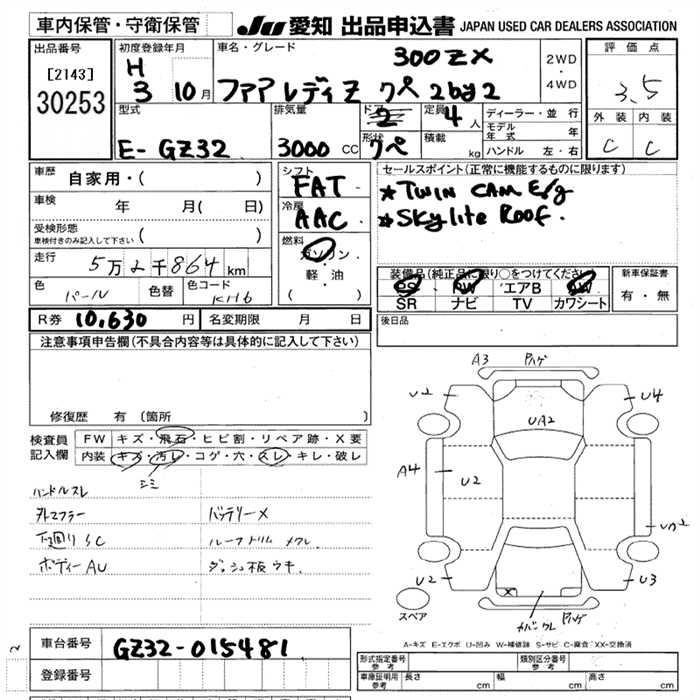 車内保管・守衛保管
JU 愛知 出品申込書 JAPAN USED CAR DEALERS ASSOCIATION
出品番号
[2143]
30253
初度登録年月
H
3 10月
車名・グレード
300ZX
フェアレディZ クペ 2by2
2WD
・
4WD
評価点
3.5
外装 内装
C C
型式
E-GZ32
排気量
3000 CC
ドア
2
形状
クペ
定員
4人
積載
kg
ディーラー・並行
モデル年式 年
ハンドル 左・右
車歴
自家用・( )
車検
年 月( 日)
受検形態
車検付きのみ記入して下さい ( )
走行
5万2千864 km
色
パール
色替
色コード
KH6
シフト
FAT
冷房
AAC
燃料
ガソリン
・
軽・油
( )
セールスポイント(正常に機能するものに限ります)
*TWIN CAM E/g
*Skylite Roof.
装備品(純正品に限り○をつけてください)
PS PW エアB AW
SR ナビ TV カワシート
新車保証書
有・無
後日品
R券 10,630 円
名変期限 月 日
注意事項申告欄(不具合内容等は具体的に記入して下さい)
修復歴 有 〔箇所 〕
検査員
記入欄
FW キズ・飛石・ヒビ割・リペア跡・X要
内装 キズ・汚レ・コゲ・穴・スレ・キレ・破レ
シミ
ハンドルスレ
外マフラー バッテリーX
下廻りSC ルーフトリム メクレ
ボディーAU ダッシュ板ウキ.
A3 Pハゲ
U2 U4
UA2
A4 U2
U2 U3
X
スペア
カバンクレ
Pハゲ
A-キズ E-エクボ U-凹み W-補修跡 S-サビ C-腐食 XX-交換済
車台番号 GZ32-015481
登録番号
形式指定番号
参考
類別区分番号
参考
車庫証明用
参考
長さ cm 幅 cm 高さ cm
2